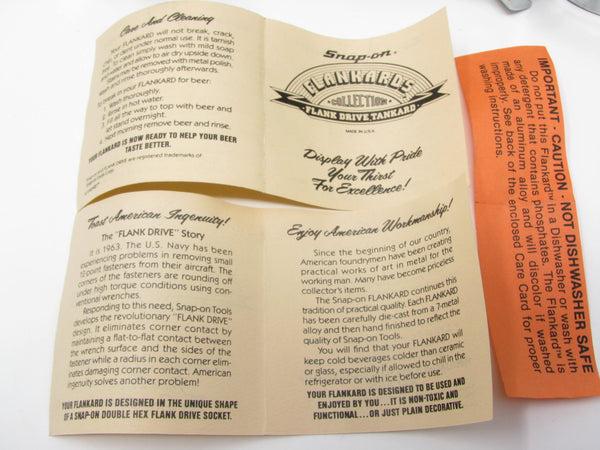 Care And Cleaning
Your FLANKARD will not break, crack,
chip, or dent under normal use. It is tarnish
To clean simply wash with mild soap
and allow to air dry upside down.
may be removed with metal polish.
and rinse thoroughly afterwards.
To break in your FLANKARD for beer:
1. Wash thoroughly.
2. Rinse in hot water.
3. Fill all the way to top with beer and
let stand overnight.
4. Next morning remove beer and rinse.
YOUR FLANKARD IS NOW READY TO HELP YOUR BEER
TASTE BETTER.
FLANK DRIVE are registered trademarks of
Snap-on
FLANKARDS
COLLECTION
FLANK DRIVE TANKARD
MADE IN U.S.A.
Display With Pride
Your Thirst
For Excellence!
Toast American Ingenuity!
The "FLANK DRIVE" Story
It is 1963. The U.S. Navy has been
experiencing problems in removing small
12-point fasteners from their aircraft. The
corners of the fasteners are rounding off
under high torque conditions using con-
ventional wrenches.
Responding to this need, Snap-on Tools
develops the revolutionary "FLANK DRIVE"
design. It eliminates corner contact by
maintaining a flat-to-flat contact between
the wrench surface and the sides of the
fastener while a radius in each corner elim-
inates damaging corner contact. American
ingenuity solves another problem!
YOUR FLANKARD IS DESIGNED IN THE UNIQUE SHAPE
OF A SNAP-ON DOUBLE HEX FLANK DRIVE SOCKET.
Enjoy American Workmanship!
Since the beginning of our country,
American foundrymen have been creating
practical works of art in metal for the
working man. Many have become priceless
collector's items.
The Snap-on FLANKARD continues this
tradition of practical quality. Each FLANKARD
has been carefully die-cast from a 7-metal
alloy and then hand finished to reflect the
quality of Snap-on Tools.
You will find that your FLANKARD will
keep cold beverages colder than ceramic
or glass, especially if allowed to chill in the
refrigerator or with ice before use.
YOUR FLANKARD IS DESIGNED TO BE USED AND
ENJOYED BY YOU...IT IS NON-TOXIC AND
FUNCTIONAL...OR JUST PLAIN DECORATIVE.
IMPORTANT - CAUTION - NOT DISHWASHER SAFE
Do not put this Flankard™ in a Dishwasher or wash with
any detergent that contains phosphates. The Flankard™ is
made of an aluminum alloy and will discolor if washed
improperly. See back of the enclosed Care Card for proper
washing instructions.